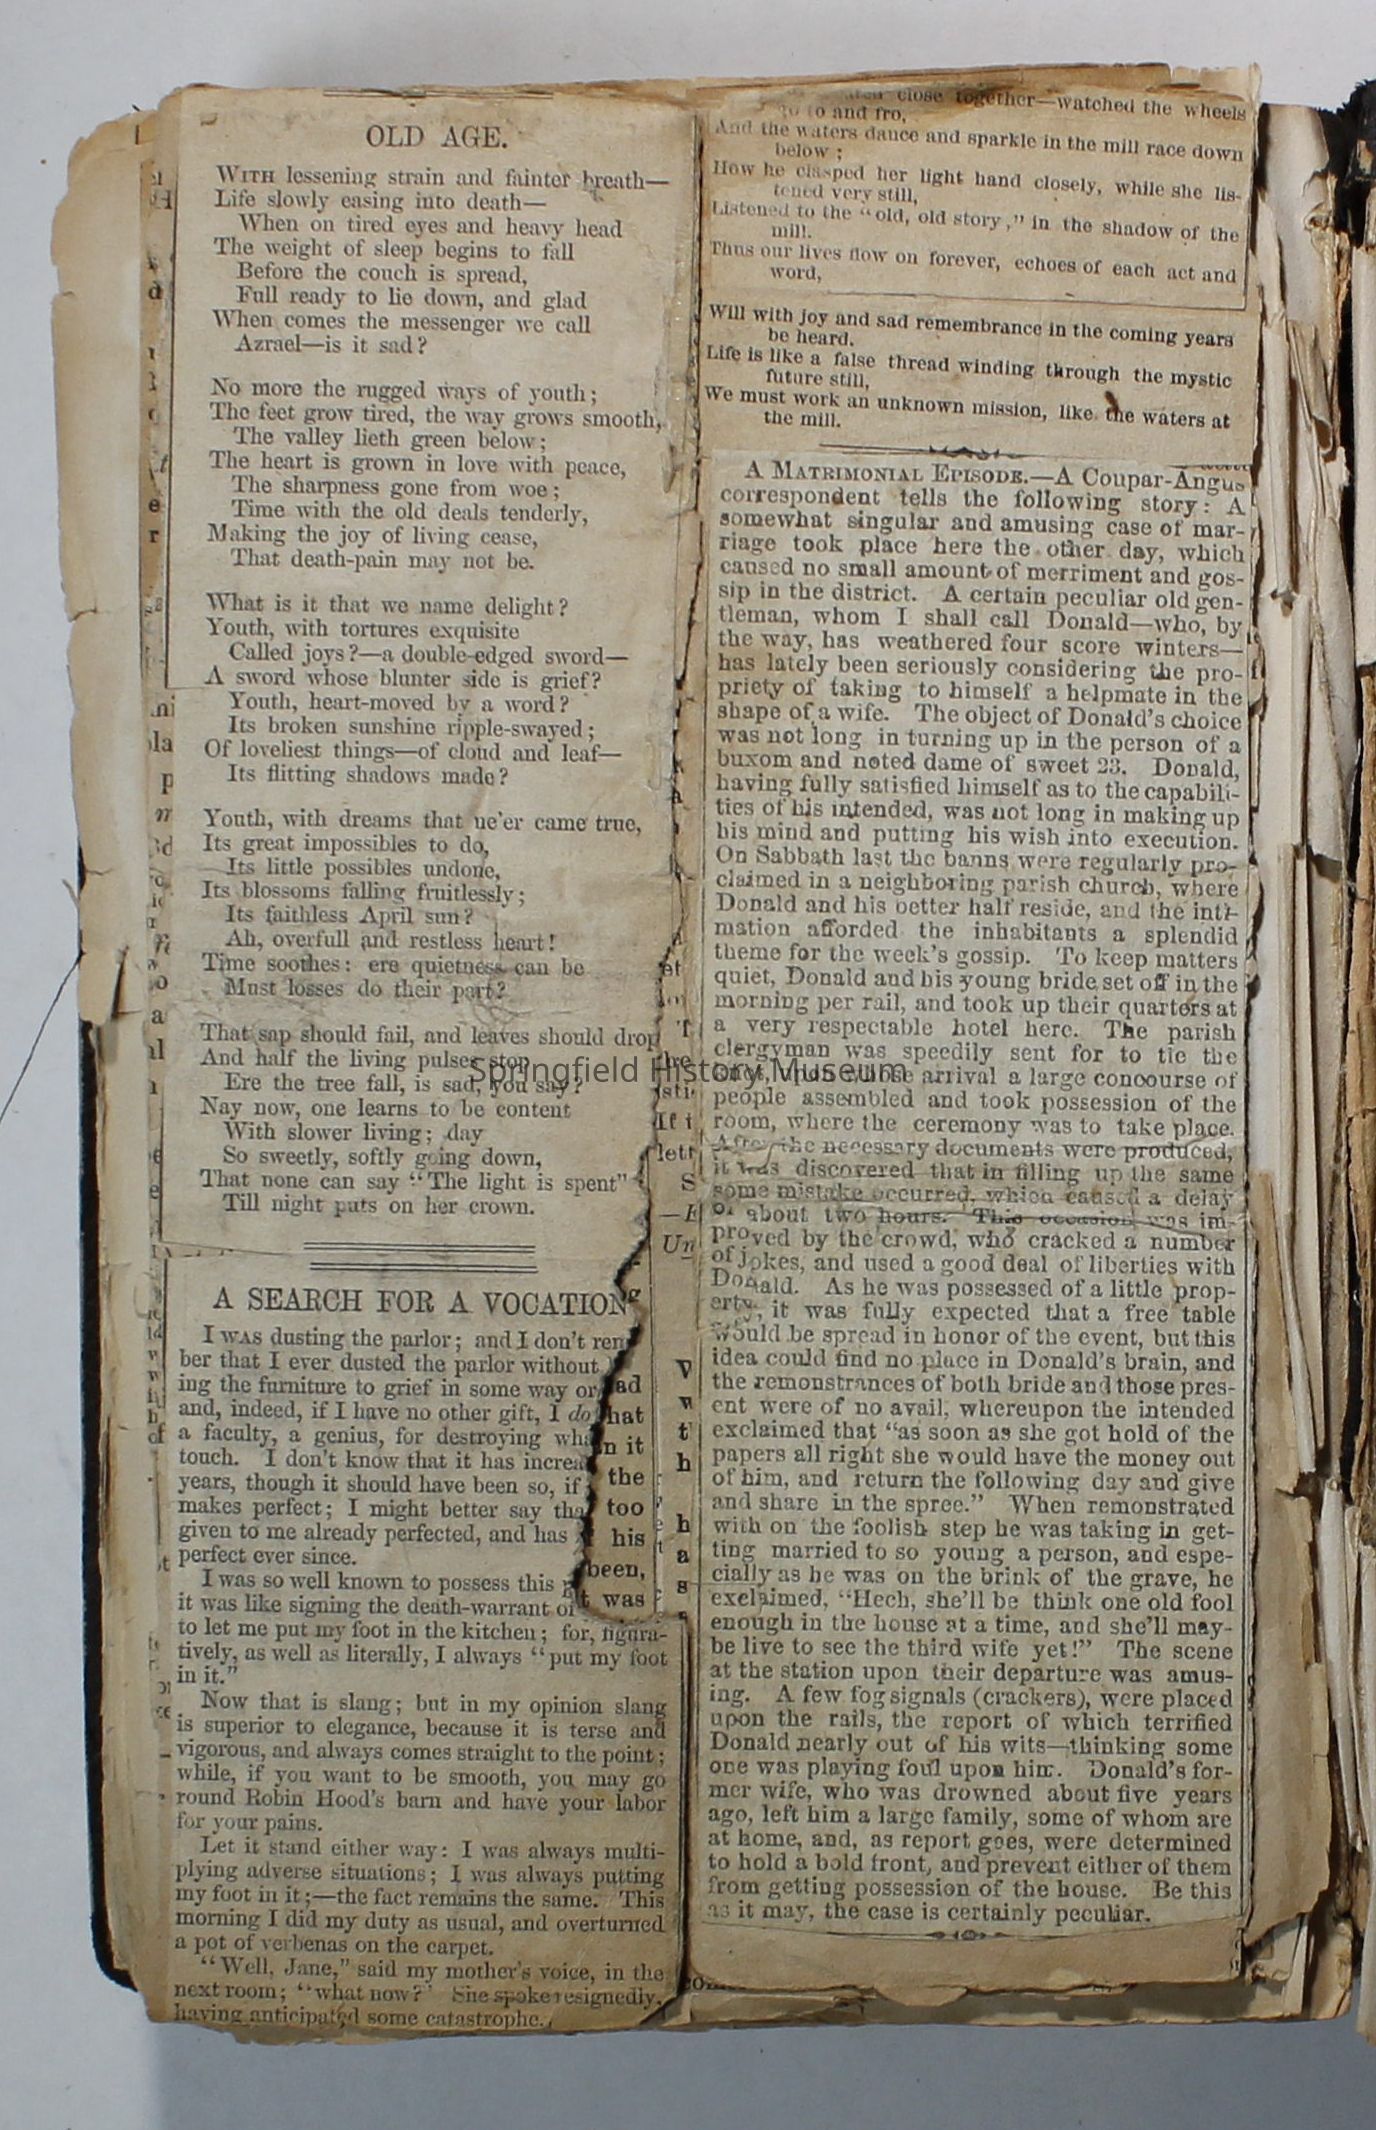 OLD AGE.
WITH lessening strain and fainter breath—
Life slowly easing into death—
When on tired eyes and heavy head
The weight of sleep begins to fall
Before the couch is spread,
Full ready to lie down, and glad
When comes the messenger we call
Azrael—is it sad?
No more the rugged ways of youth;
The feet grow tired, the way grows smooth,
The valley lieth green below;
The heart is grown in love with peace,
The sharpness gone from woe;
Time with the old deals tenderly,
Making the joy of living cease,
That death-pain may not be.
What is it that we name delight?
Youth, with tortures exquisite
Called joys?—a double-edged sword—
A sword whose blunter side is grief?
Youth, heart-moved by a word?
Its broken sunshine ripple-swayed;
Of loveliest things—of cloud and leaf—
Its flitting shadows made?
Youth, with dreams that ne'er came true,
Its great impossibles to do,
Its little possibles undone,
Its blossoms falling fruitlessly;
Its faithless April sun?
Ah, overfull and restless heart!
Time soothes: ere quietness can be
Must losses do their part?
That sap should fail, and leaves should drop
And half the living pulses stop
Ere the tree fall, is sad, you say?
Nay now, one learns to be content
With slower living; day
So sweetly, softly going down,
That none can say "The light is spent"
Till night puts on her crown.
A SEARCH FOR A VOCATION
I WAS dusting the parlor; and I don't rem
ber that I ever dusted the parlor without
ing the furniture to grief in some way or
and, indeed, if I have no other gift, I do
a faculty, a genius, for destroying wha
touch. I don't know that it has increa
years, though it should have been so, if
makes perfect; I might better say tha
given to me already perfected, and has
perfect ever since.
I was so well known to possess this
it was like signing the death-warrant of
to let me put my foot in the kitchen; for, figura-
tively, as well as literally, I always "put my foot
in it."
Now that is slang; but in my opinion slang
is superior to elegance, because it is terse and
vigorous, and always comes straight to the point;
while, if you want to be smooth, you may go
round Robin Hood's barn and have your labor
for your pains.
Let it stand either way: I was always multi-
plying adverse situations; I was always putting
my foot in it;—the fact remains the same. This
morning I did my duty as usual, and overturned
a pot of verbenas on the carpet.
"Well, Jane," said my mother's voice, in the
next room; "what now?" She spoke resignedly,
having anticipated some catastrophe.
ad
hat
n it
the
too
his
been,
was
close together—watched the wheels
go to and fro,
And the waters dance and sparkle in the mill race down
below;
How he clasped her light hand closely, while she lis-
tened very still,
Listened to the "old, old story," in the shadow of the
mill.
Thus our lives flow on forever, echoes of each act and
word,
Will with joy and sad remembrance in the coming years
be heard.
Life is like a false thread winding through the mystic
future still,
We must work an unknown mission, like the waters at
the mill.
A MATRIMONIAL EPISODE.—A Coupar-Angus
correspondent tells the following story: A
somewhat singular and amusing case of mar-
riage took place here the other day, which
caused no small amount of merriment and gos-
sip in the district. A certain peculiar old gen-
tleman, whom I shall call Donald—who, by
the way, has weathered four score winters—
has lately been seriously considering the pro-
priety of taking to himself a helpmate in the
shape of a wife. The object of Donald's choice
was not long in turning up in the person of a
buxom and noted dame of sweet 23. Donald,
having fully satisfied himself as to the capabili-
ties of his intended, was not long in making up
his mind and putting his wish into execution.
On Sabbath last the banns were regularly pro-
claimed in a neighboring parish church, where
Donald and his better half reside, and the inti-
mation afforded the inhabitants a splendid
theme for the week's gossip. To keep matters
quiet, Donald and his young bride set off in the
morning per rail, and took up their quarters at
a very respectable hotel here. The parish
clergyman was speedily sent for to tie the
upon whose arrival a large concourse of
people assembled and took possession of the
room, where the ceremony was to take place.
After the necessary documents were produced,
it was discovered that in filling up the same
some mistake occurred, which caused a delay
of about two hours. This occasion was im-
proved by the crowd, who cracked a number
of jokes, and used a good deal of liberties with
Donald. As he was possessed of a little prop-
erty, it was fully expected that a free table
would be spread in honor of the event, but this
idea could find no place in Donald's brain, and
the remonstrances of both bride and those pres-
ent were of no avail, whereupon the intended
exclaimed that "as soon as she got hold of the
papers all right she would have the money out
of him, and return the following day and give
and share in the spree." When remonstrated
with on the foolish step he was taking in get-
ting married to so young a person, and espe-
cially as he was on the brink of the grave, he
exclaimed, "Hech, she'll be think one old fool
enough in the house at a time, and she'll may-
be live to see the third wife yet!" The scene
at the station upon their departure was amus-
ing. A few fog signals (crackers), were placed
upon the rails, the report of which terrified
Donald nearly out of his wits—thinking some
one was playing foul upon him. Donald's for-
mer wife, who was drowned about five years
ago, left him a large family, some of whom are
at home, and, as report goes, were determined
to hold a bold front, and prevent either of them
from getting possession of the house. Be this
as it may, the case is certainly peculiar.
Springfield History Museum